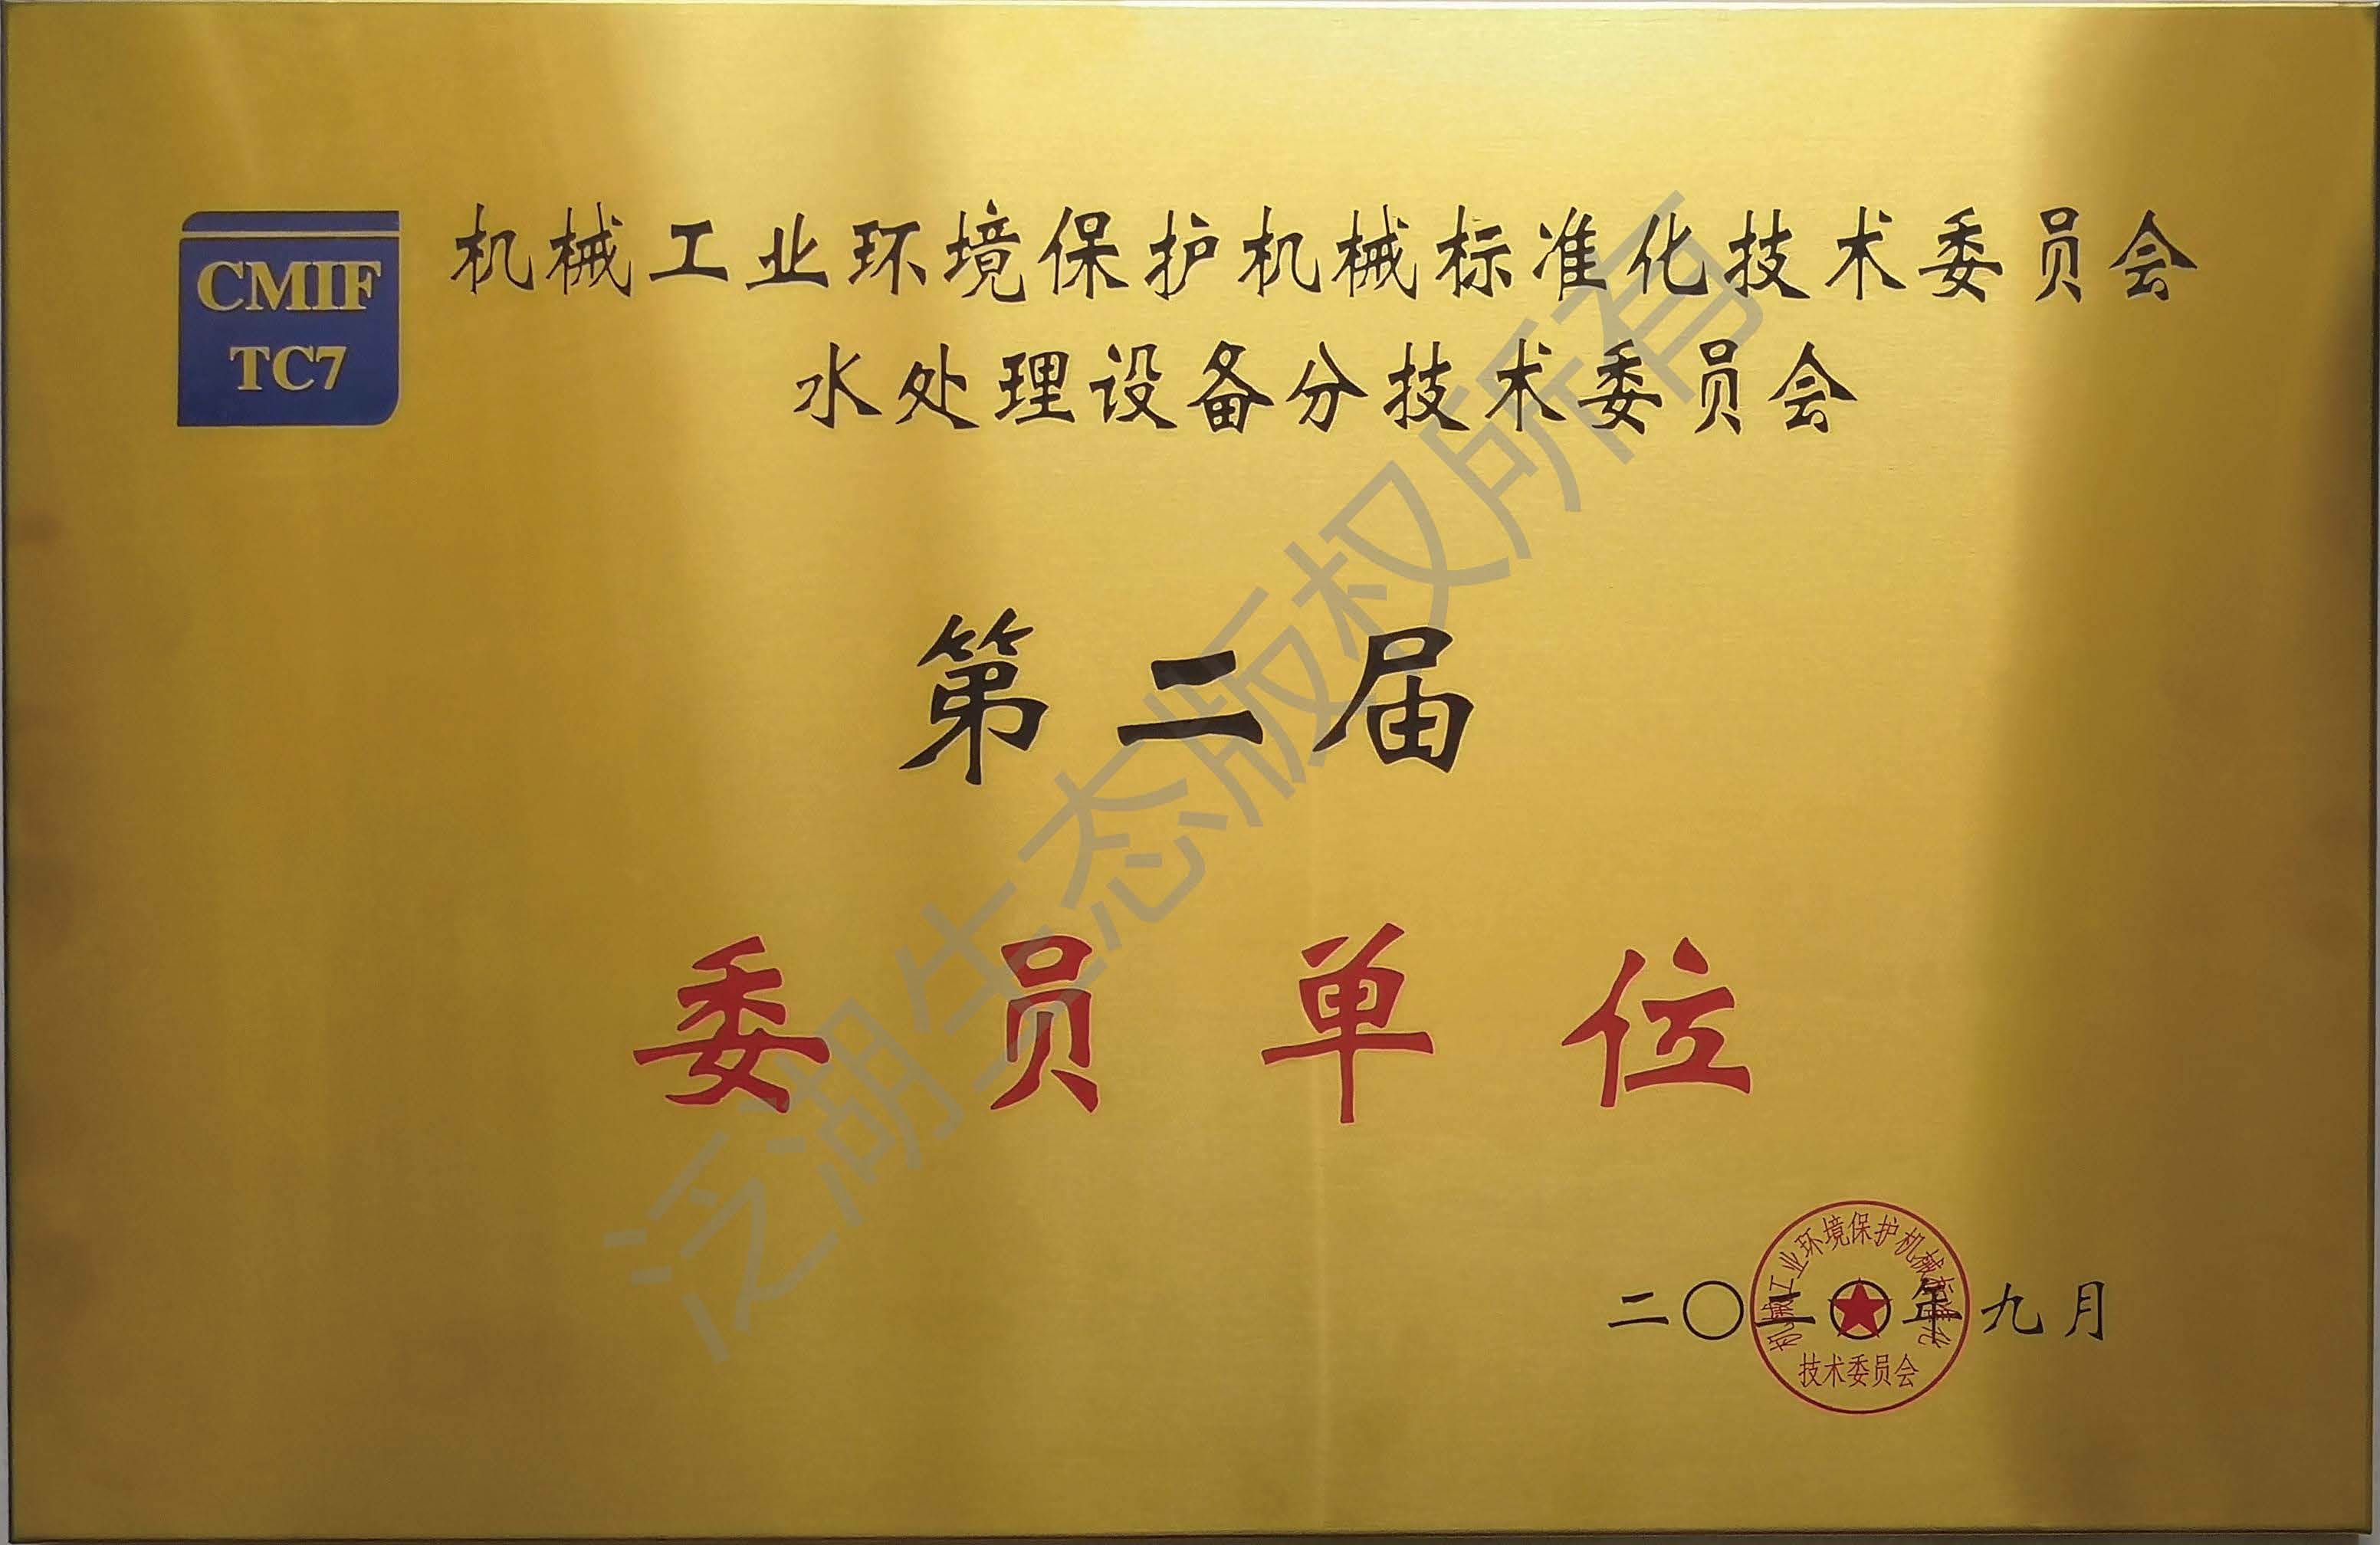 CMIF
TC7
机械工业环境保护机械标准化技术委员会
水处理设备分技术委员会
第二届
委员单位
二〇二〇年九月
机械工业环境保护机械标准化
技术委员会
泛湖生态版权所有